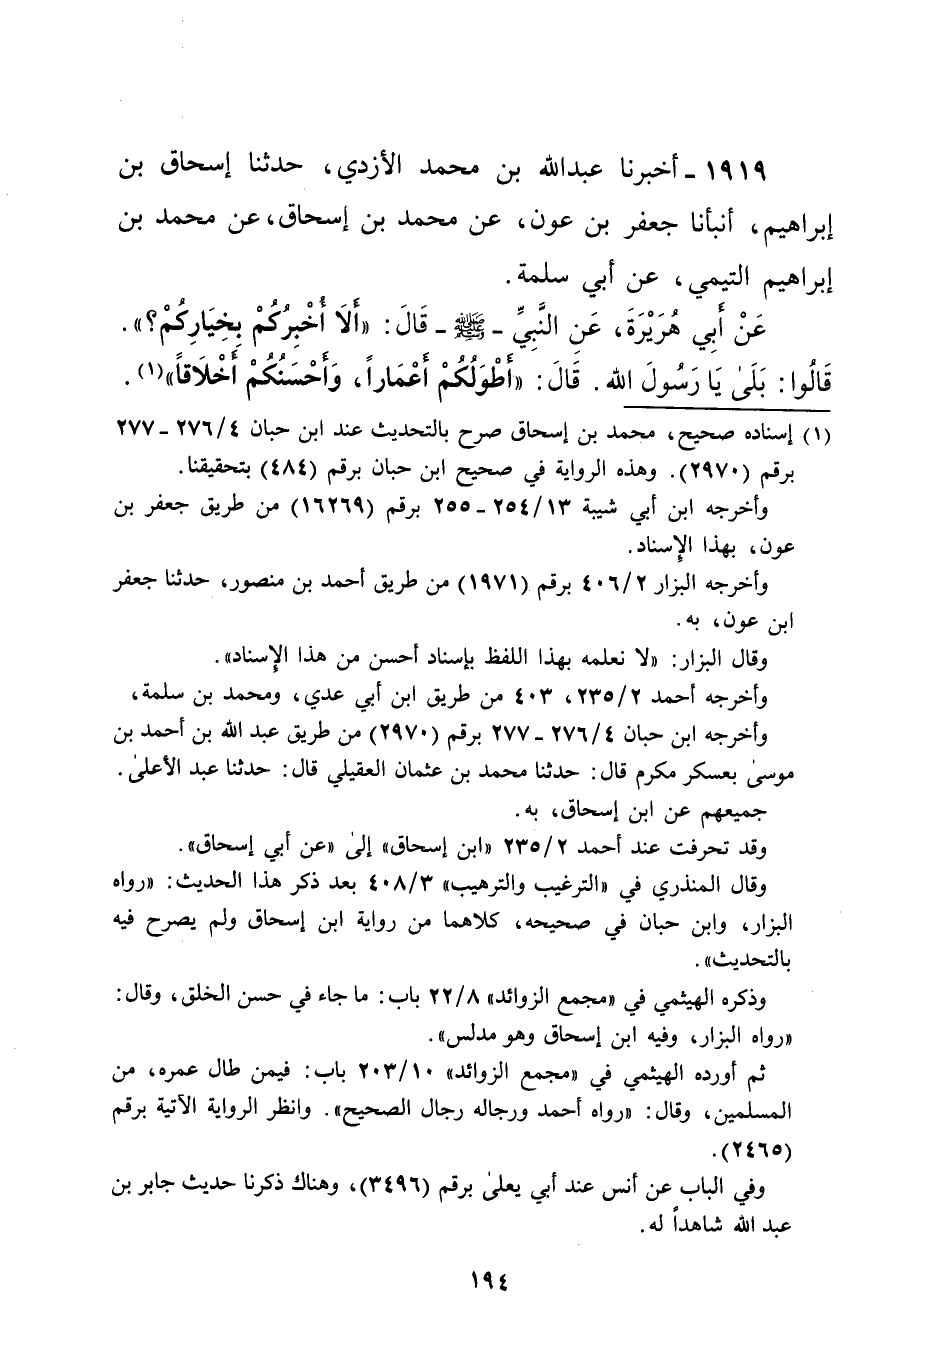 ١٩١٩ - أخبرنا عبدالله بن محمد الأزدي، حدثنا إسحاق بن
إبراهيم، أنبأنا جعفر بن عون، عن محمد بن إسحاق، عن محمد بن
إبراهيم التيمي، عن أبي سلمة.
عَنْ أَبِي هُرَيْرَةَ، عَنِ النَّبِيِّ - ﷺ - قَالَ: «أَلَا أُخْبِرُكُمْ بِخِيَارِكُمْ؟».
قَالُوا: بَلَىٰ يَا رَسُولَ الله. قَالَ: «أَطْوَلُكُمْ أَعْمَاراً، وَأَحْسَنُكُمْ أَخْلَاقاً»(١).
(١) إسناده صحيح، محمد بن إسحاق صرح بالتحديث عند ابن حبان ٢٧٦/٤ - ٢٧٧
برقم (٢٩٧٠). وهذه الرواية في صحيح ابن حبان برقم (٤٨٤) بتحقيقنا.
وأخرجه ابن أبي شيبة ٢٥٤/١٣ - ٢٥٥ برقم (١٦٢٦٩) من طريق جعفر بن
عون، بهذا الإسناد.
وأخرجه البزار ٤٠٦/٢ برقم (١٩٧١) من طريق أحمد بن منصور، حدثنا جعفر
ابن عون، به.
وقال البزار: «لا نعلمه بهذا اللفظ بإسناد أحسن من هذا الإسناد».
وأخرجه أحمد ٢٣٥/٢، ٤٠٣ من طريق ابن أبي عدي، ومحمد بن سلمة،
وأخرجه ابن حبان ٢٧٦/٤ - ٢٧٧ برقم (٢٩٧٠) من طريق عبد الله بن أحمد بن
موسىٰ بعسكر مكرم قال: حدثنا محمد بن عثمان العقيلي قال: حدثنا عبد الأعلىٰ.
جميعهم عن ابن إسحاق، به.
وقد تحرفت عند أحمد ٢٣٥/٢ «ابن إسحاق» إلىٰ «عن أبي إسحاق».
وقال المنذري في «الترغيب والترهيب» ٤٠٨/٣ بعد ذكر هذا الحديث: «رواه
البزار، وابن حبان في صحيحه، كلاهما من رواية ابن إسحاق ولم يصرح فيه
بالتحديث».
وذكره الهيثمي في «مجمع الزوائد» ٢٢/٨ باب: ما جاء في حسن الخلق، وقال:
«رواه البزار، وفيه ابن إسحاق وهو مدلس».
ثم أورده الهيثمي في «مجمع الزوائد» ٢٠٣/١٠ باب: فيمن طال عمره، من
المسلمين، وقال: «رواه أحمد ورجاله رجال الصحيح». وانظر الرواية الآتية برقم
(٢٤٦٥).
وفي الباب عن أنس عند أبي يعلىٰ برقم (٣٤٩٦)، وهناك ذكرنا حديث جابر بن
عبد الله شاهداً له.
١٩٤